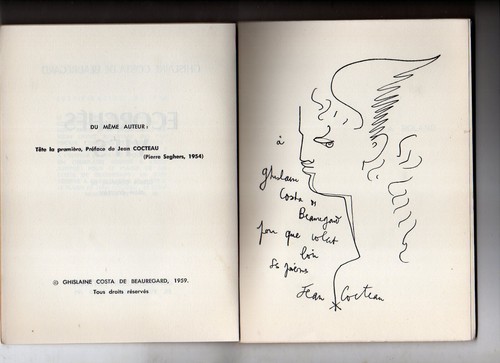 DU MÊME AUTEUR :
Tête la première, Préface de Jean COCTEAU
(Pierre Seghers, 1954)
© GHISLAINE COSTA DE BEAUREGARD, 1959.
Tous droits réservés
à
Ghislaine
Costa de
Beauregard
pour que
loin
Jean Cocteau
ECORCHÉS